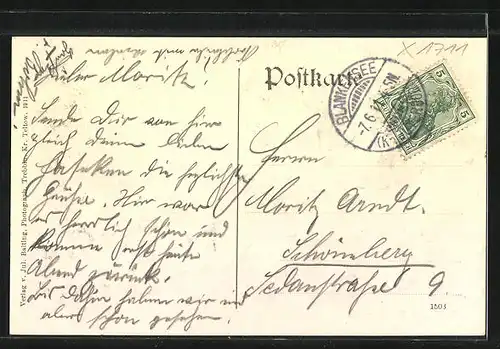 X 1711
Postkarte
BLANKENSEE
-7.6.11
5
5
Lieber Moritz!
Sende Dir von hier
gleich Deinen Lieben
die herzlichsten
Grüße. Hier war
es herrlich schon und
kommen erst heute
Abend zurück.
Bis dahin haben wir uns
aber schon gesehen.
Herrn
Moritz Arndt.
Schöneberg
Sedanstrasse 9.
1503
Verlag v. Jul. Balting, Photograph, Trebbin, Kr. Teltow. 1911